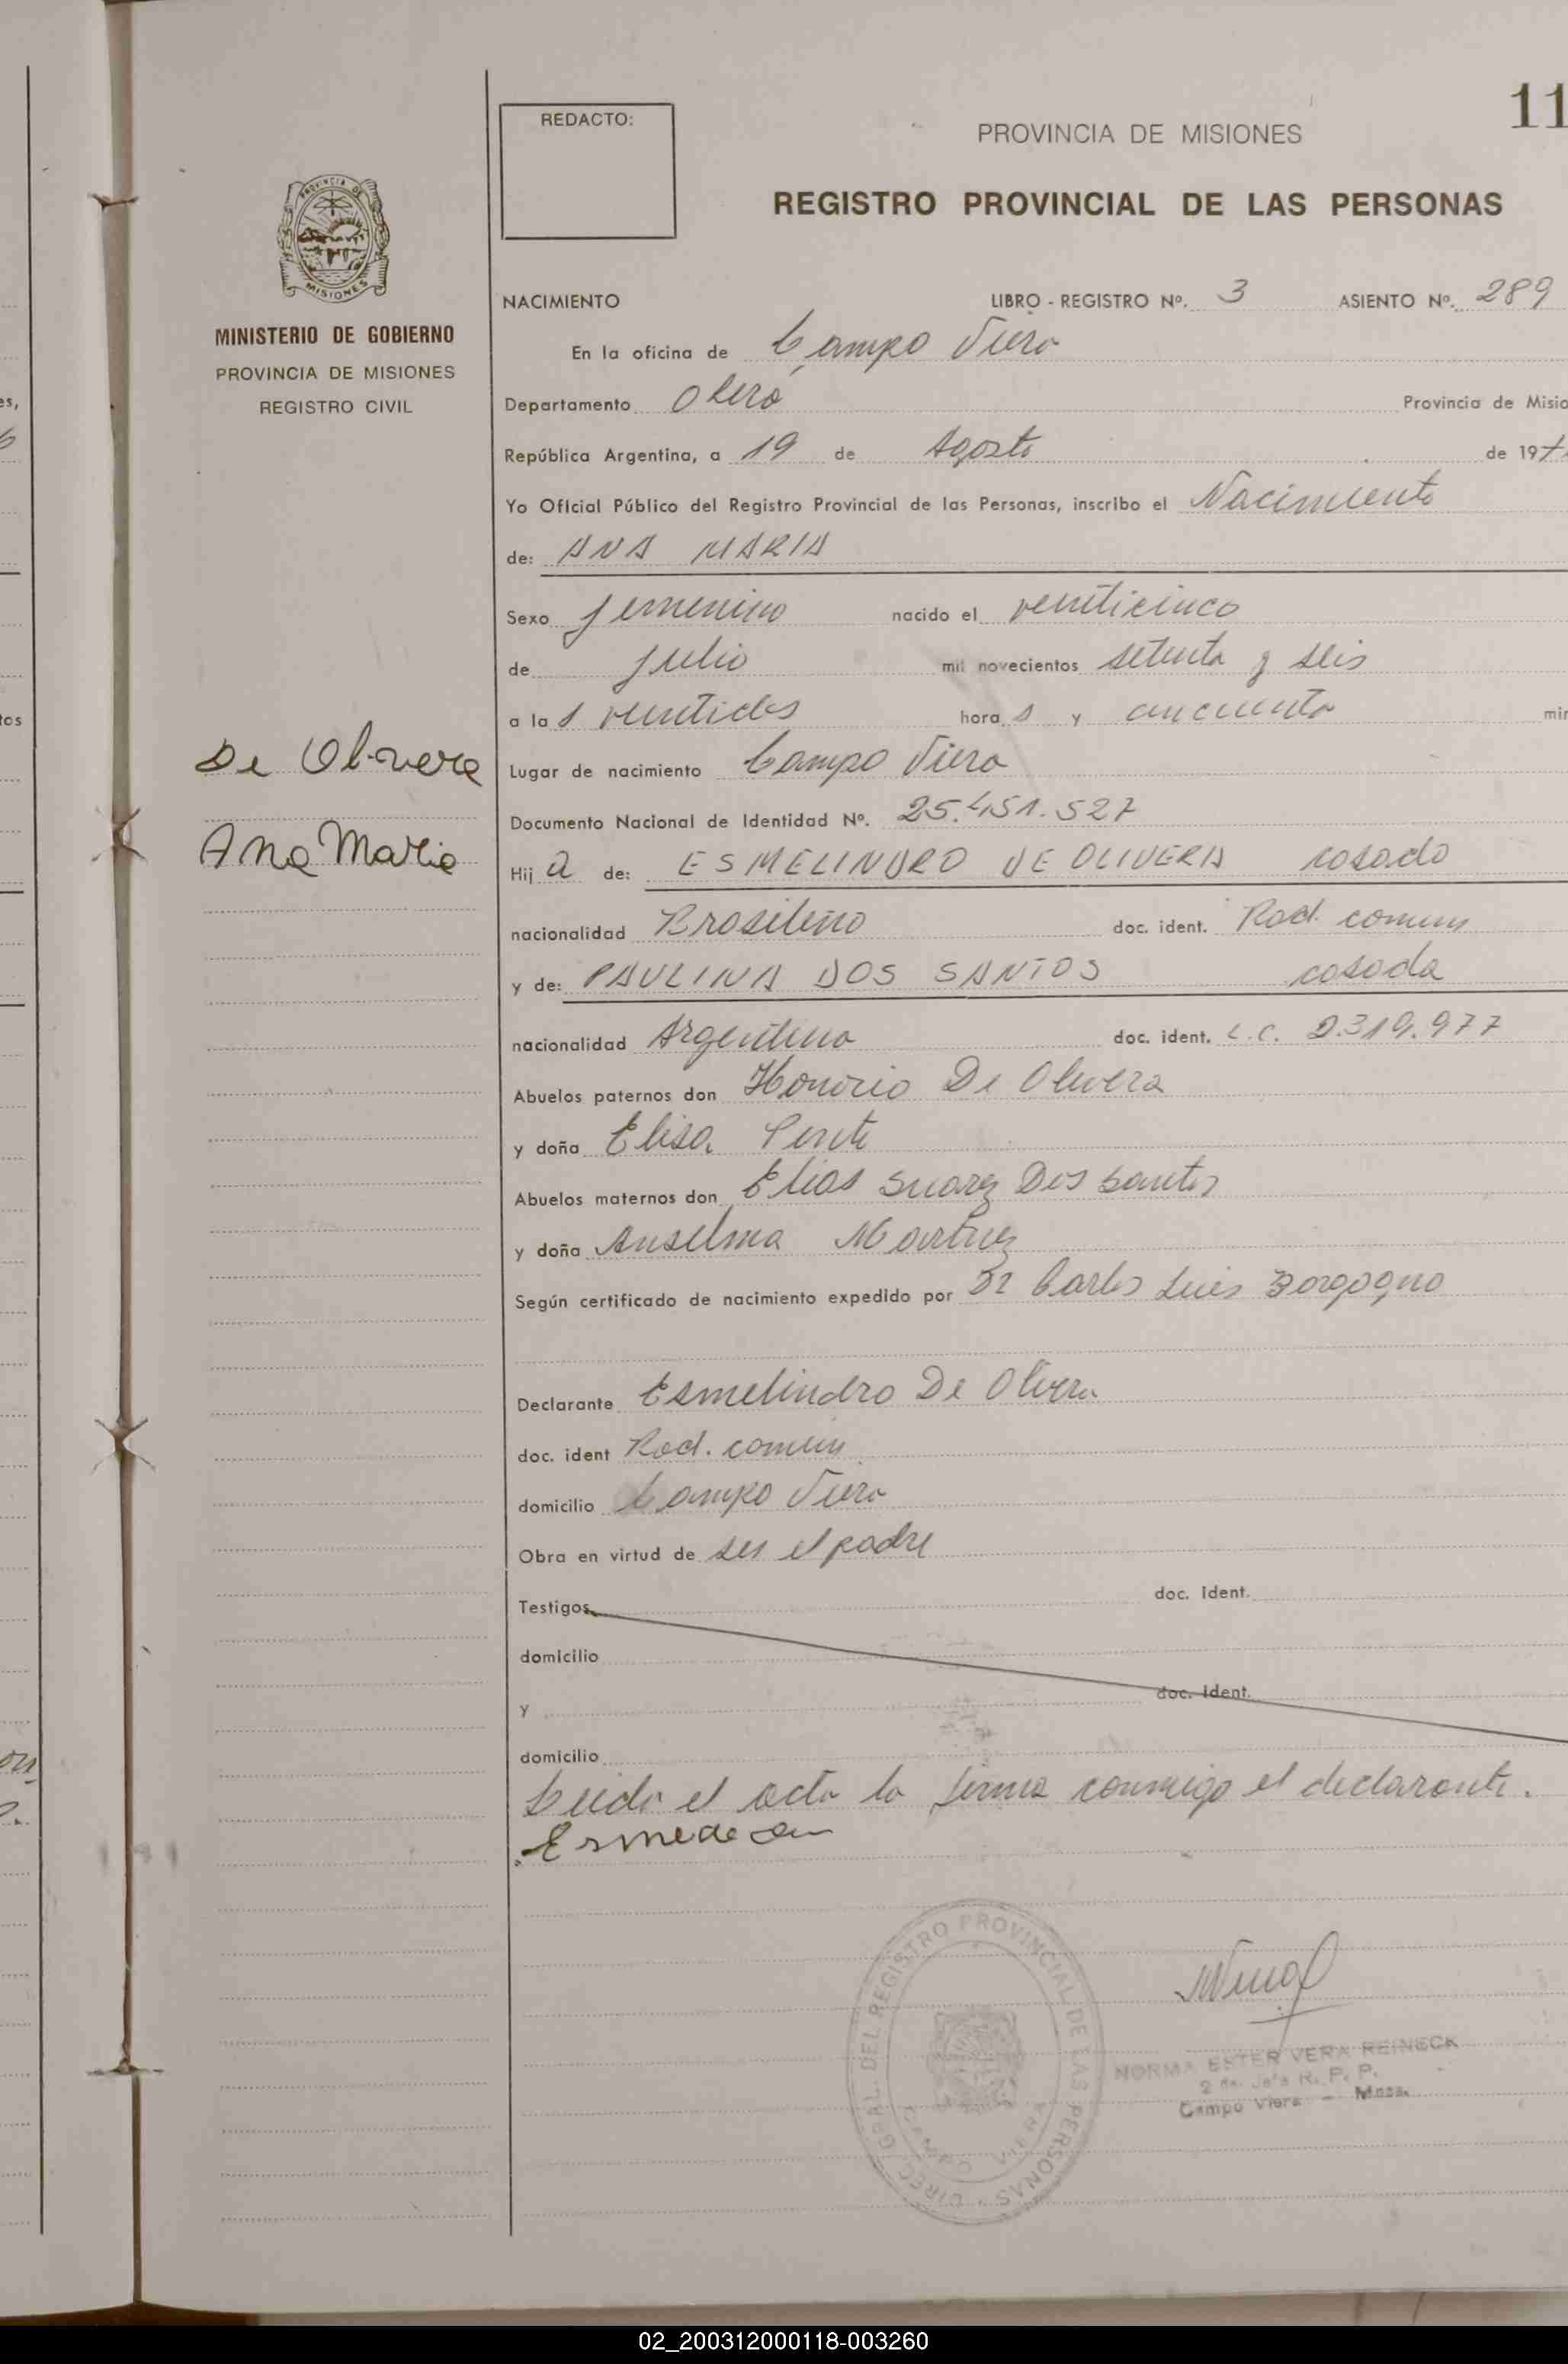 11
REDACTO:
PROVINCIA DE MISIONES
REGISTRO PROVINCIAL DE LAS PERSONAS
PROVINCIA DE
MISIONES
MINISTERIO DE GOBIERNO
PROVINCIA DE MISIONES
REGISTRO CIVIL
De Olivera
Ana Maria
NACIMIENTO LIBRO - REGISTRO Nº. 3 ASIENTO Nº. 289
En la oficina de Campo Viera
Departamento Oberá Provincia de Misio
República Argentina, a 19 de Agosto de 197
Yo Oficial Público del Registro Provincial de las Personas, inscribo el Nacimiento
de: ANA MARIA
Sexo femenino nacido el veinticinco
de julio mil novecientos setenta y seis
a la s veintidos hora s y cincuenta min
Lugar de nacimiento Campo Viera
Documento Nacional de Identidad Nº. 25.451.527
Hij a de: ESMELINDRO DE OLIVERA casado
nacionalidad Brasileño doc. ident. Rad. comun
y de: PAULINA DOS SANTOS casada
nacionalidad Argentina doc. ident. L.C. 2.319.977
Abuelos paternos don Honorio De Olivera
y doña Elisa
Abuelos maternos don Elias Suarez Dos Santos
y doña Anselma Martinez
Según certificado de nacimiento expedido por Dr Carlos Luis Borgogno
Declarante Esmelindro De Olivera
doc. ident Rad. comun
domicilio Campo Viera
Obra en virtud de ser el padre
Testigos doc. ident.
domicilio
y doc. ident.
domicilio
Leida el acta la firma conmigo el declarante.
DIREC. GRAL. DEL REGISTRO PROVINCIAL DE LAS PERSONAS
CAMPO VIERA
NORMA ESTER VERA REINECK
2 da. Jefa R. P. P.
Campo Viera - Mnes.
02_200312000118-003260